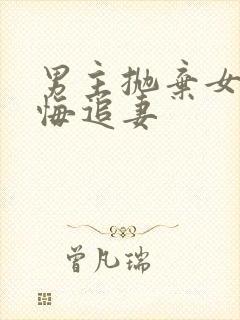 男主抛弃女
悔追妻
曾凡瑞